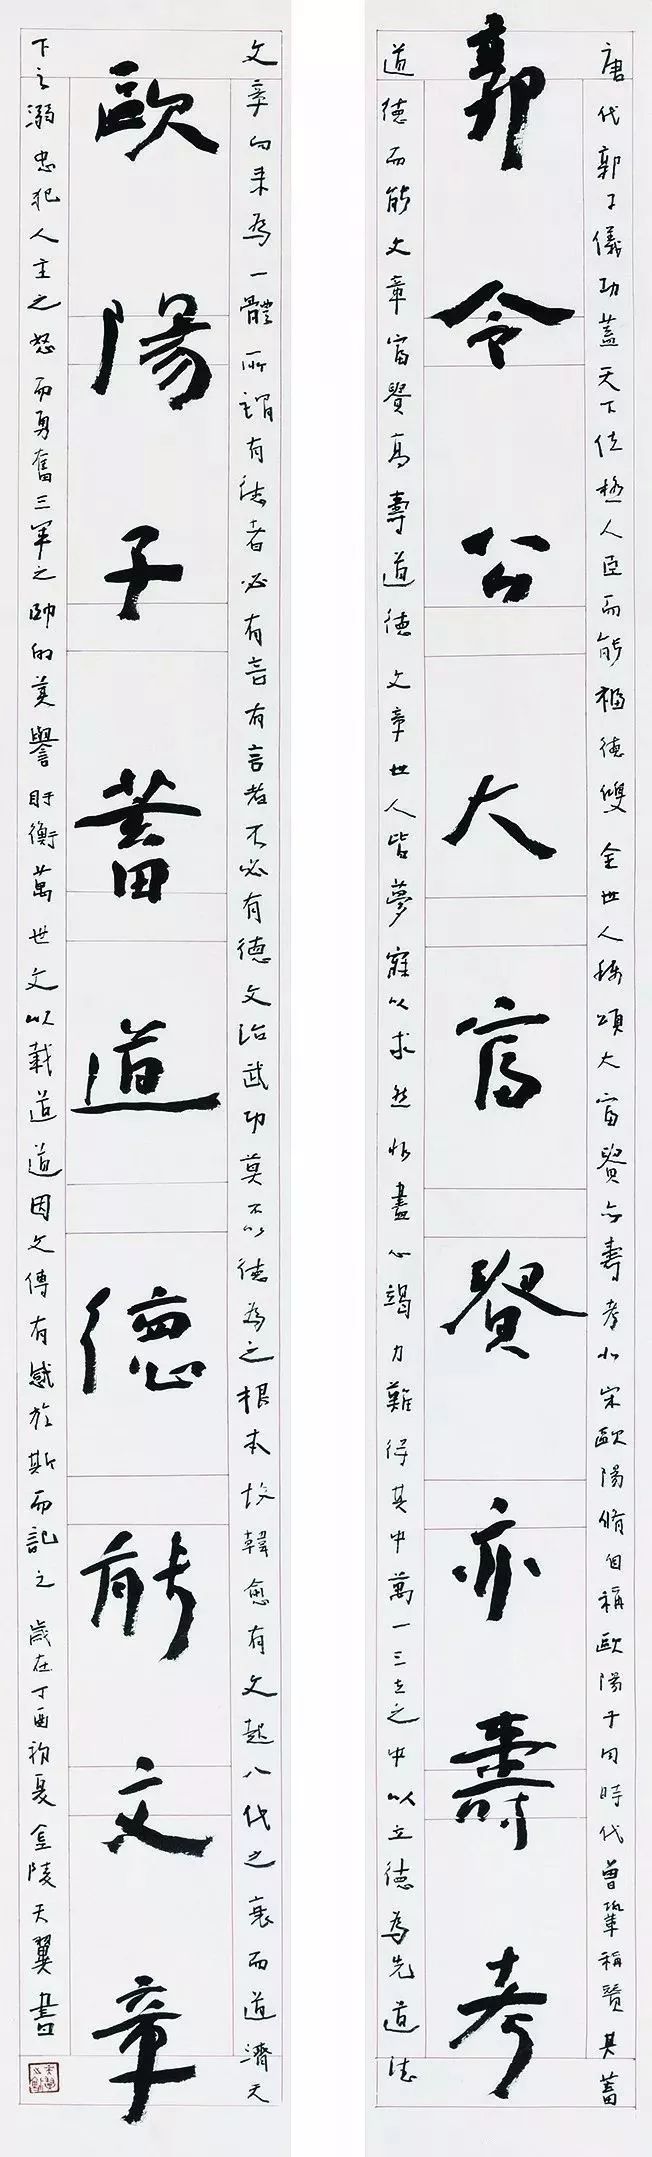 唐代郭子儀功蓋天下位極人臣而能福德雙全世人稱頌大富貴亦壽考北宋歐陽脩自稱歐陽子同時代曾鞏稱贊其蓄
郭令公大富貴亦壽考
道德而能文章富貴高壽道德文章世人皆夢寐以求然非盡心竭力難得其中萬一三立之中以立德為先道德
文章向来為一體所謂有德者必有言有言者不必有德文治武功莫不以德為之根本故韓愈有文起八代之衰而道濟天
歐陽子蓄道德能文章
下之溺忠犯人主之怒而勇奮三軍之帥的美譽盱衡萬世文以載道道因文傳有感於斯而記之歲在丁酉初夏金陵天翼書